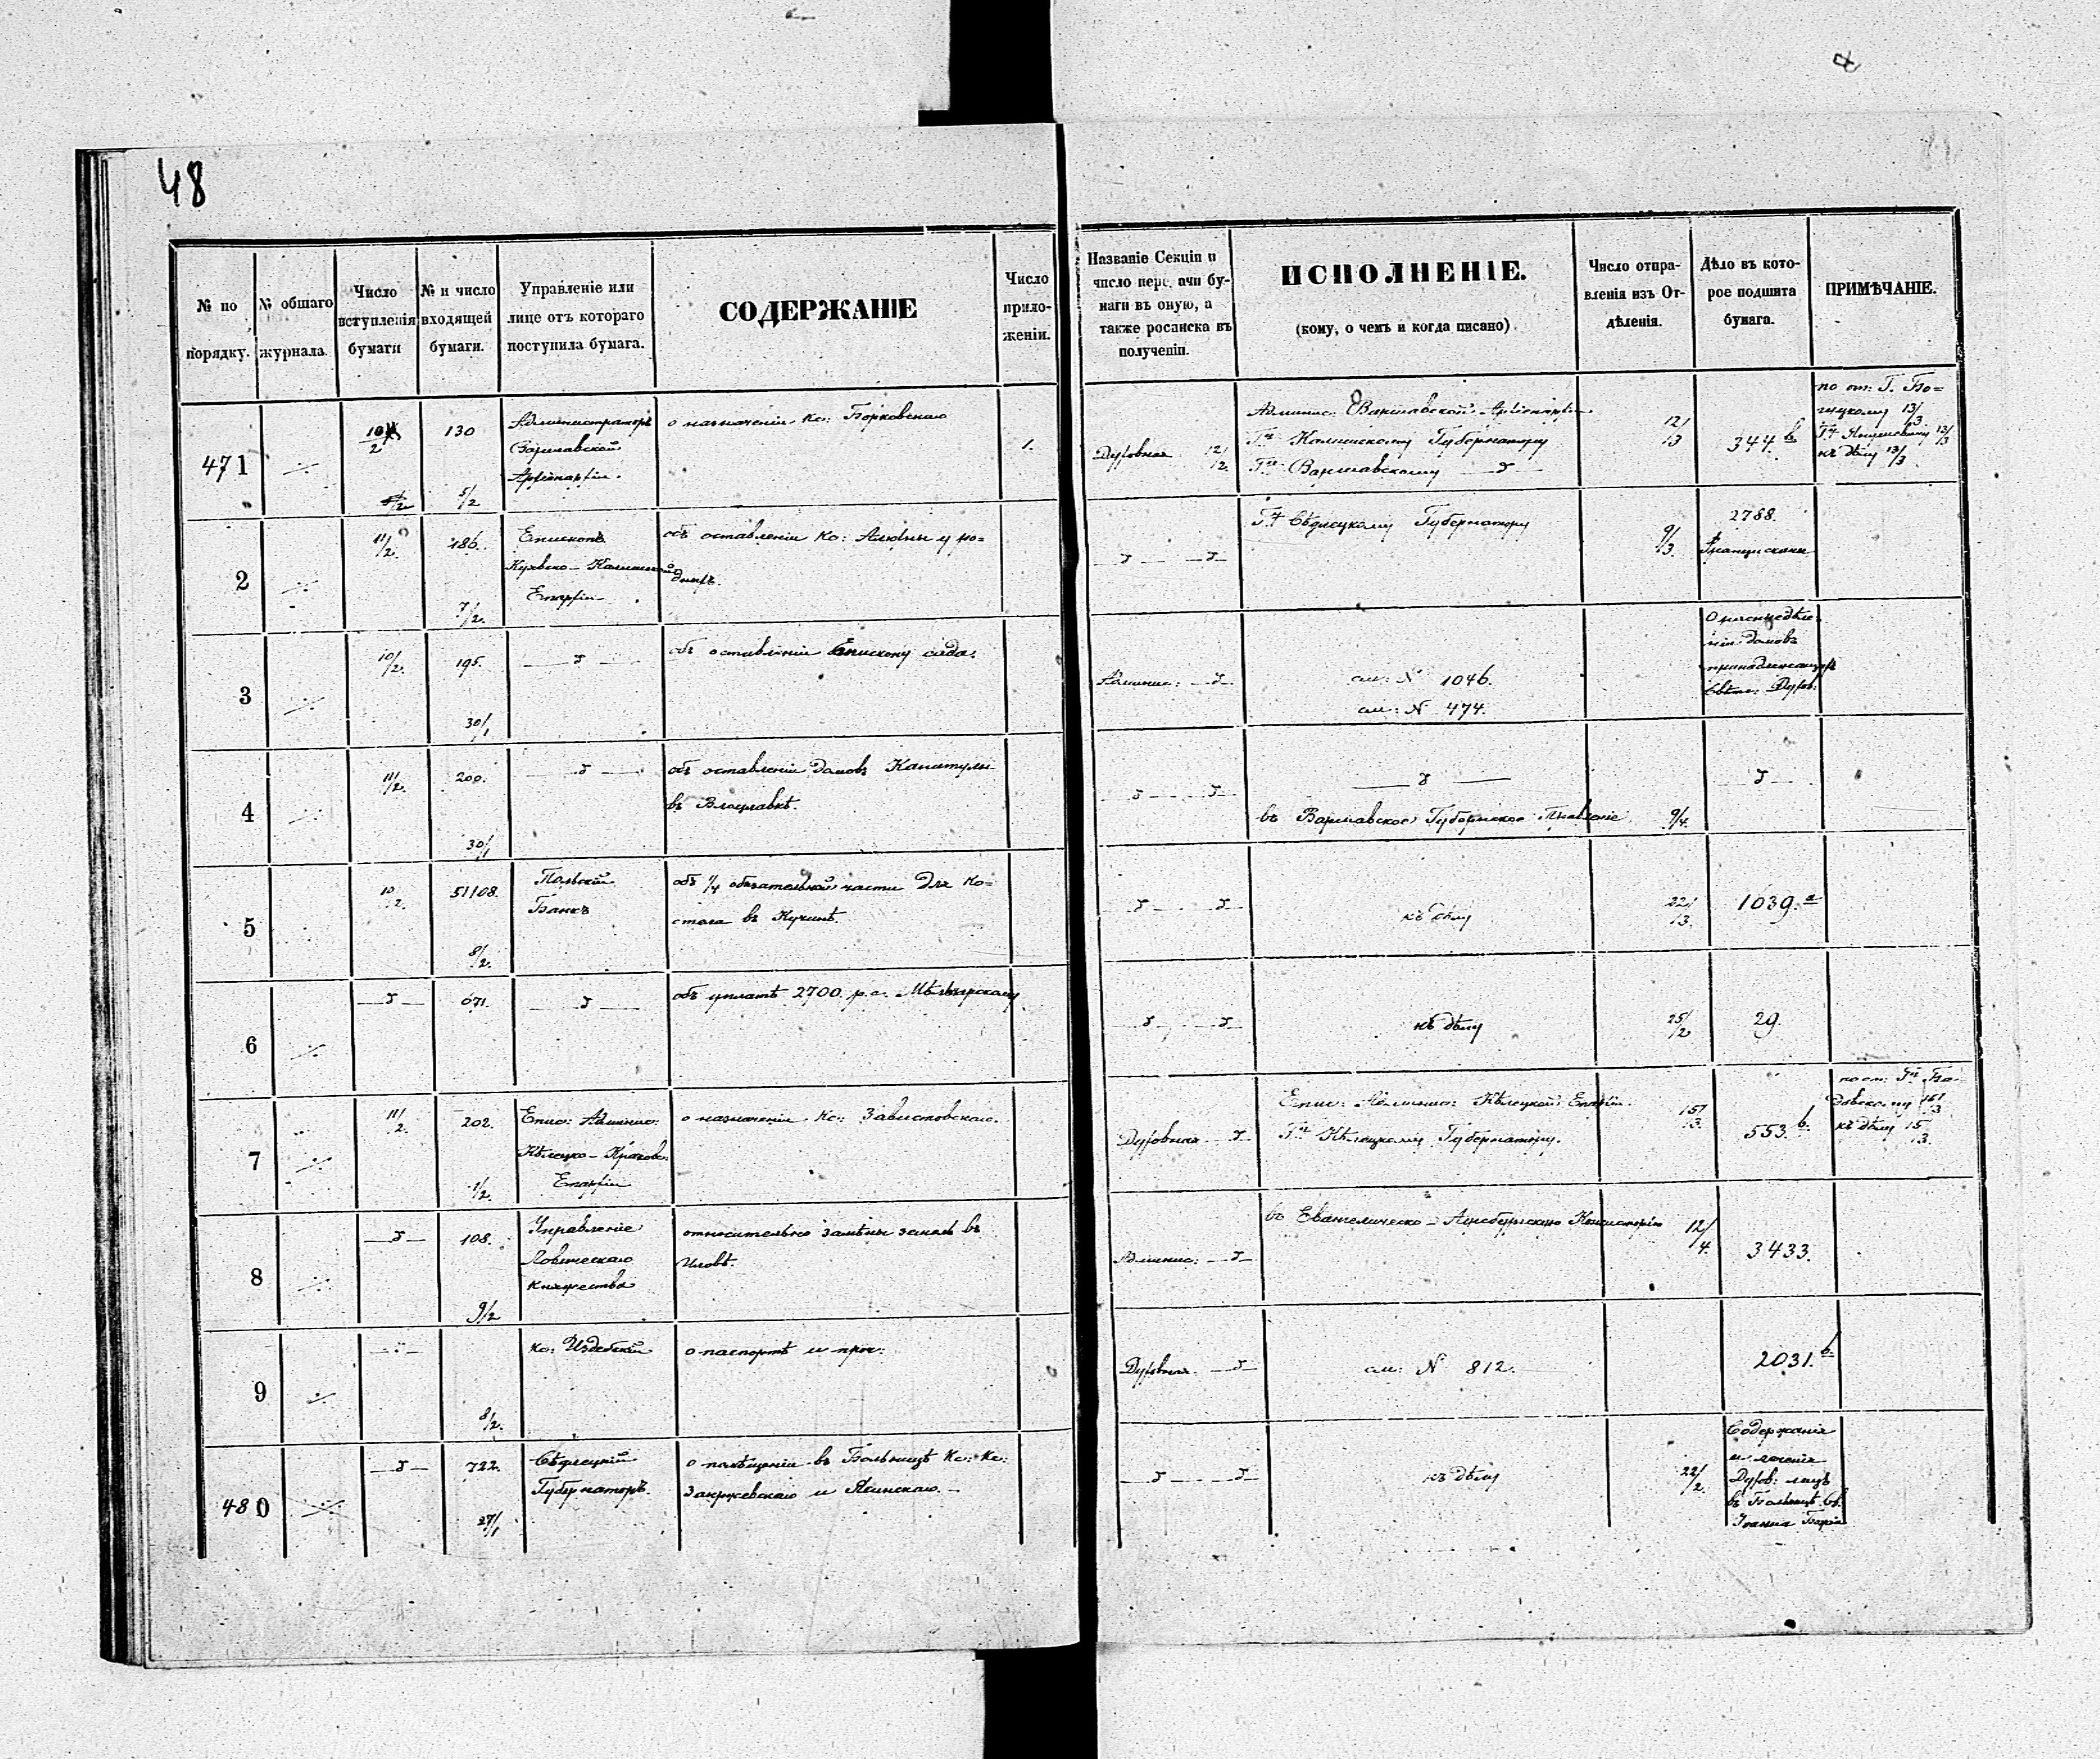 48
№ по порядку.
№ общаго журнала.
Число вступленія бумаги
№ и число входящей бумаги.
Управленіе или лице отъ котораго поступила бумага.
СОДЕРЖАНІЕ
Число приложеніи.
Названіе Секціи и число пере ачи бумаги въ оную, а также росписка въ полученіи.
ИСПОЛНЕНІЕ.
(кому, о чемъ и когда писано).
Число отправленія изъ Отдѣленія.
Дѣло въ которое подшита бумага.
ПРИМѢЧАНІЕ.
471
10/2
130
5/2
Администраторъ
Варшавской
Архіепархіи.
о назначеніи Кс: Борковскаго
1.
Духовная 12/2.
Админис: Варшавской Архіепархіи
Гну Калишскому Губернатору
Гну Варшавскому
12/3
344.b
по от: Г.
13/3
къ дѣлу 13/3
2
11/2.
186.
7/2.
Епископъ
Куявско-Калишской
Епархіи
объ оставленіи Кс:
Гну Сѣдлецкому Губернатору
9/3.
2788.
Францискане
3
10/2.
195.
30/1
объ оставленіи Епископу сада.
Админис:
см: N 1046.
см: N 474.
домовъ
принадлежащихъ
Свѣтс: Духов:
4
11/2.
200.
30/1
объ оставленіи домовъ Капитулы
въ Влоцлавкѣ.
въ Варшавское Губернское Правленіе
9/4.
5
10/2.
51108.
8/2.
Польскій
Банкъ
объ 1/4 обязательной части для Ко=
стела въ
къ дѣлу
22/3.
1039.a
6
671.
объ уплатѣ 2700 р.с.
къ дѣлу
25/2
29.
7
11/2.
202.
1/2.
Епис: Админис:
Кѣлецко-Краковс:
Епархіи
о назначеніи Кс: Завистовскаго.
Духовная
Епис: Админис: Кѣлецкой Епархіи.
Гну Кѣлецкому Губернатору.
15/3.
553.b.
по от: Гну
15/3
къ дѣлу 15/3.
8
108.
9/2
Управленіе
Ловическаго
Княжества
относительно замѣны земель въ
Иловѣ.
Админис:
въ Евангелическо-Аугсбургскую Консисторію
12/4.
3433.
9
8/2.
Кс: Издебскій
о паспортѣ и проч:
Духовная
см: N 812.
2031.b.
480
722.
27/1
Сѣдлецкій
Губернаторъ.
о помѣщеніи въ Больницѣ Кс: Кс:
Закржевскаго и Ясинскаго.
къ дѣлу
22/2.
Содержанія
и леченія
Духов: лицъ
въ Больницѣ Св.
Іоанна Божія